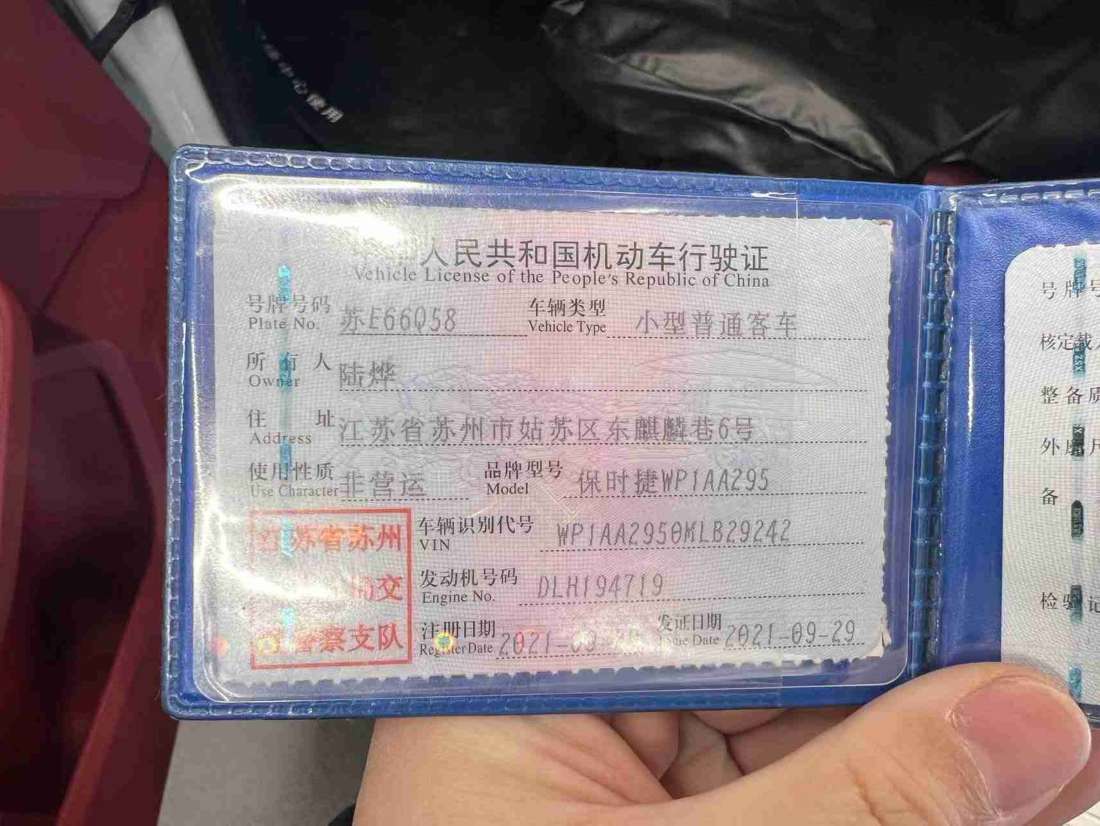 心使用
人民共和国机动车行驶证
Vehicle License of the People's Republic of China
号牌号码 苏E66Q58 车辆类型 小型普通客车
Plate No. Vehicle Type
所有人 陆烨
Owner
住址 江苏省苏州市姑苏区东麒麟巷6号
Address
使用性质 非营运 品牌型号 保时捷WP1AA295
Use Character Model
车辆识别代号 WP1AA2950MLB29242
VIN
发动机号码 DLH194719
Engine No.
注册日期 2021-09- 发证日期 2021-09-29
Register Date Issue Date
苏省苏州
局交
警察支队
号牌号
核定载
整备质
外廓尺
备
检验记